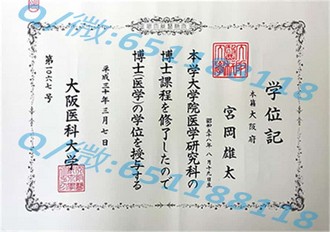 学位記
本籍 大阪府
宮岡雄太
本学大学院医学研究科の
博士課程を修了したので
博士(医学)の学位を授与する
平成三十年三月七日
大阪医科大学
第一〇六七号
Q/微:651188118
Q/微:651188118
Q/微:651188118